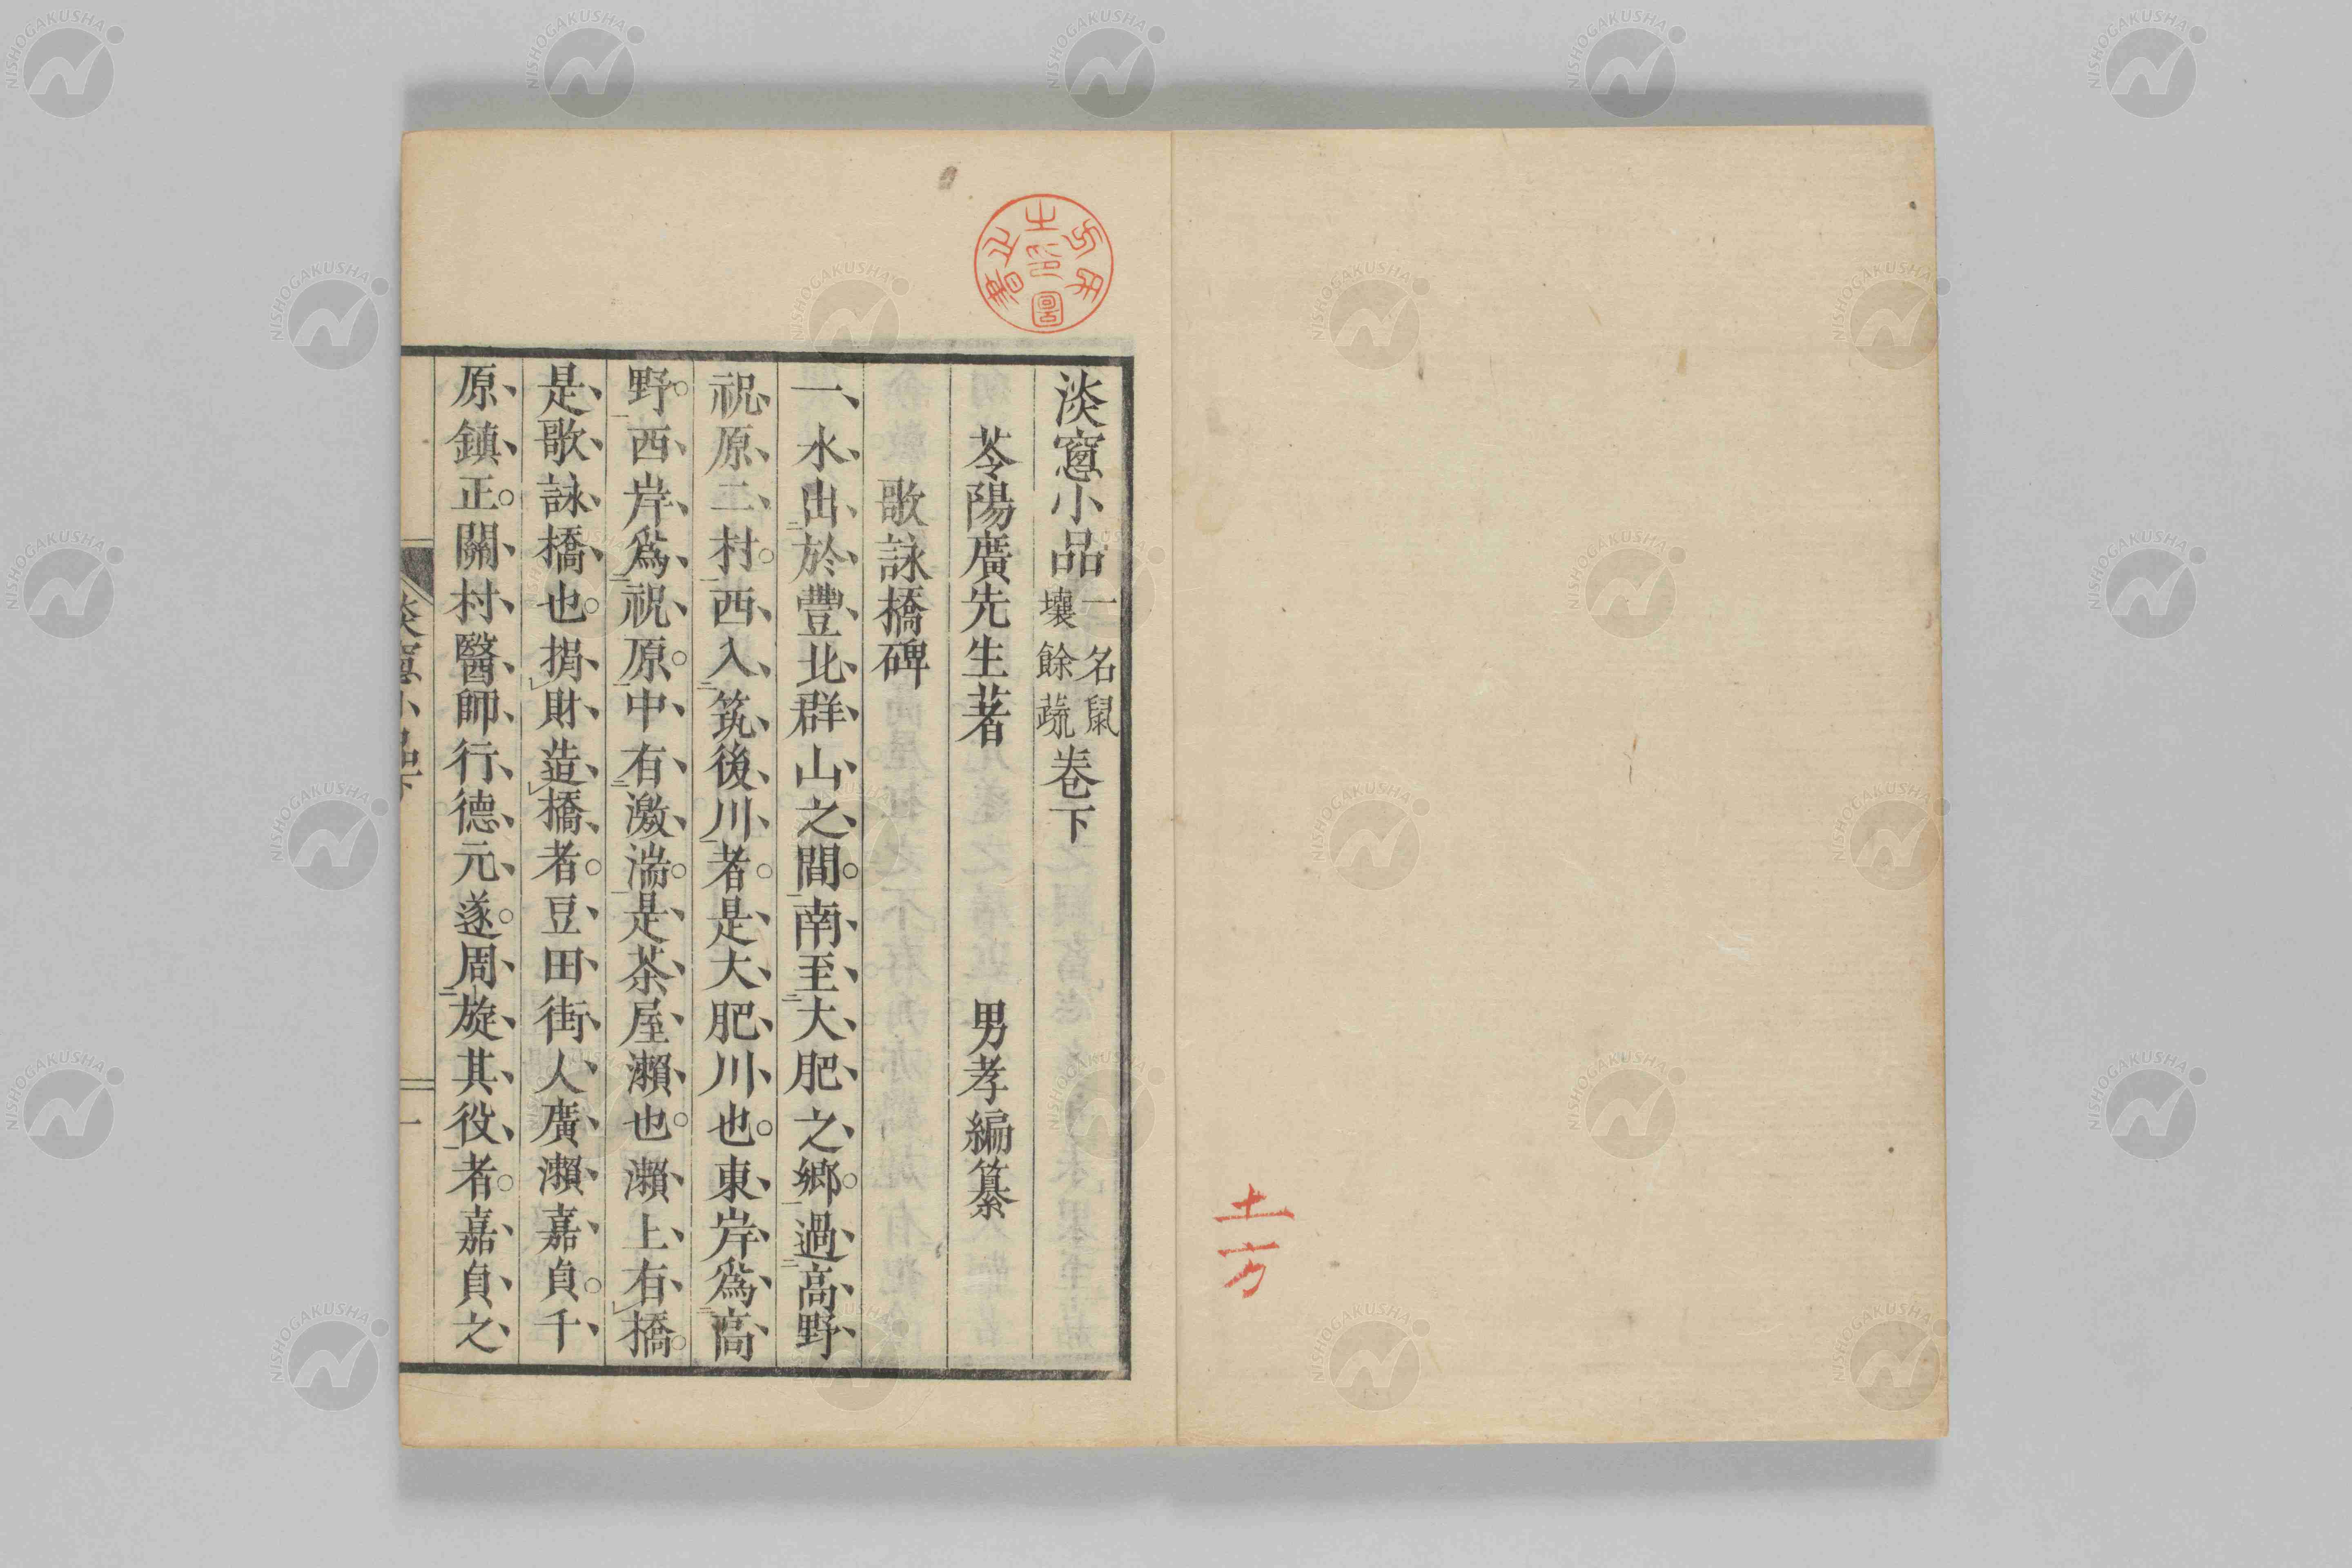 土方
淡窻小品一名鼠壤餘蔬卷下
苓陽廣先生著 男孝編纂
歌詠橋碑
一水出於豐北群山之間。南至大肥之鄕。過高野
祝原二村。西入筑後川者。是大肥川也。東岸爲高
野。西岸爲祝原。中有激湍。是茶屋瀨也。瀨上有橋。
是歌詠橋也。捐財造橋者。豆田街人廣瀨嘉貞。千
原鎮正。關村醫師行德元遂。周旋其役者。嘉貞之
NISHOGAKUSHA